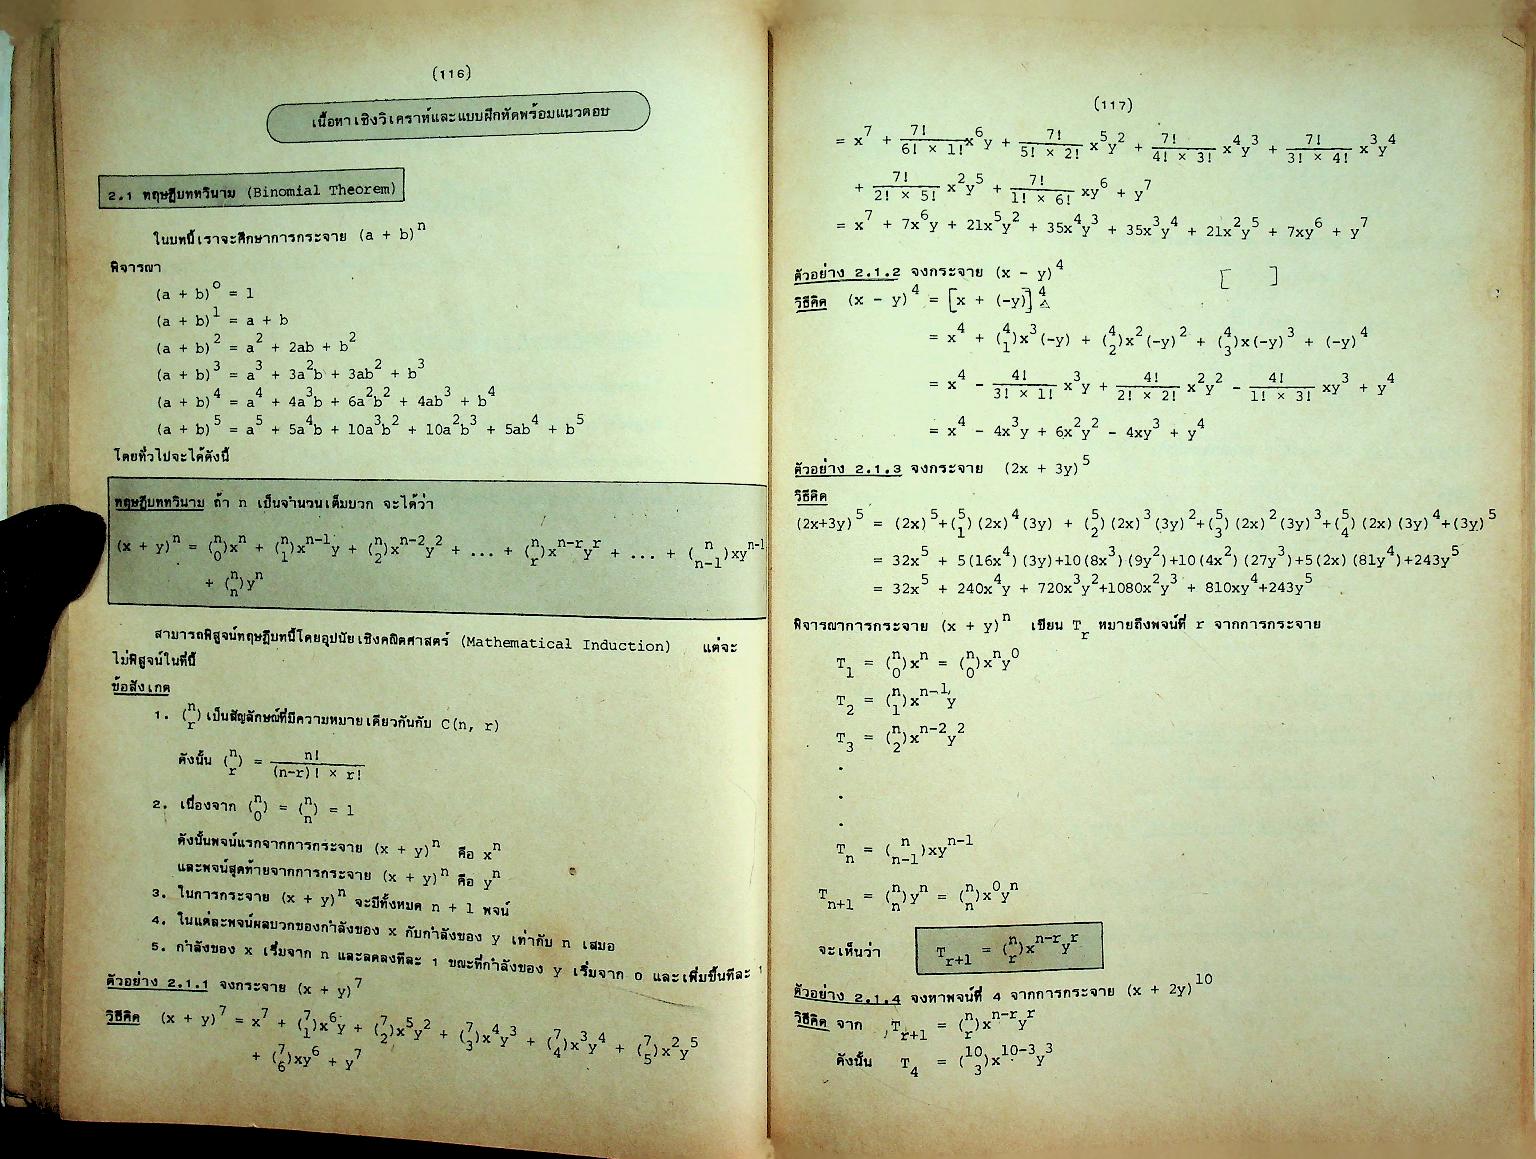 (116)
เนื้อหาเชิงวิเคราห์และแบบฝึกหัดพร้อมแนวตอบ
2.1 ทฤษฎีบททวินาม (Binomial Theorem)
ในบทนี้เราจะศึกษาการกระจาย (a + b)^n
พิจารณา
(a + b)^0 = 1
(a + b)^1 = a + b
(a + b)^2 = a^2 + 2ab + b^2
(a + b)^3 = a^3 + 3a^2b + 3ab^2 + b^3
(a + b)^4 = a^4 + 4a^3b + 6a^2b^2 + 4ab^3 + b^4
(a + b)^5 = a^5 + 5a^4b + 10a^3b^2 + 10a^2b^3 + 5ab^4 + b^5
โดยทั่วไปจะได้ดังนี้
ทฤษฎีบททวินาม ถ้า n เป็นจำนวนเต็มบวก จะได้ว่า
(x + y)^n = (n 0)x^n + (n 1)x^{n-1}y + (n 2)x^{n-2}y^2 + ... + (n r)x^{n-r}y^r + ... + (n n-1)xy^{n-1}
+ (n n)y^n
สามารถพิสูจน์ทฤษฎีบทนี้โดยอุปนัยเชิงคณิตศาสตร์ (Mathematical Induction) แต่จะ
ไม่พิสูจน์ในที่นี้
ข้อสังเกต
1. (n r) เป็นสัญลักษณ์ที่มีความหมายเดียวกันกับ C(n, r)
ดังนั้น (n r) = n! / (n-r)! × r!
2. เนื่องจาก (n 0) = (n n) = 1
ดังนั้นพจน์แรกจากการกระจาย (x + y)^n คือ x^n
และพจน์สุดท้ายจากการกระจาย (x + y)^n คือ y^n
3. ในการกระจาย (x + y)^n จะมีทั้งหมด n + 1 พจน์
4. ในแต่ละพจน์ผลบวกของกำลังของ x กับกำลังของ y เท่ากับ n เสมอ
5. กำลังของ x เริ่มจาก n และลดลงทีละ 1 ขณะที่กำลังของ y เริ่มจาก 0 และเพิ่มขึ้นทีละ 1
ตัวอย่าง 2.1.1 จงกระจาย (x + y)^7
วิธีคิด (x + y)^7 = x^7 + (7 1)x^6y + (7 2)x^5y^2 + (7 3)x^4y^3 + (7 4)x^3y^4 + (7 5)x^2y^5
+ (7 6)xy^6 + y^7
(117)
= x^7 + 7!/(6! × 1!) x^6y + 7!/(5! × 2!) x^5y^2 + 7!/(4! × 3!) x^4y^3 + 7!/(3! × 4!) x^3y^4
+ 7!/(2! × 5!) x^2y^5 + 7!/(1! × 6!) xy^6 + y^7
= x^7 + 7x^6y + 21x^5y^2 + 35x^4y^3 + 35x^3y^4 + 21x^2y^5 + 7xy^6 + y^7
ตัวอย่าง 2.1.2 จงกระจาย (x - y)^4 [ ]
วิธีคิด (x - y)^4 = [x + (-y)]^4
= x^4 + (4 1)x^3(-y) + (4 2)x^2(-y)^2 + (4 3)x(-y)^3 + (-y)^4
= x^4 - 4!/(3! × 1!) x^3y + 4!/(2! × 2!) x^2y^2 - 4!/(1! × 3!) xy^3 + y^4
= x^4 - 4x^3y + 6x^2y^2 - 4xy^3 + y^4
ตัวอย่าง 2.1.3 จงกระจาย (2x + 3y)^5
วิธีคิด
(2x+3y)^5 = (2x)^5+(5 1)(2x)^4(3y) + (5 2)(2x)^3(3y)^2+(5 3)(2x)^2(3y)^3+(5 4)(2x)(3y)^4+(3y)^5
= 32x^5 + 5(16x^4)(3y)+10(8x^3)(9y^2)+10(4x^2)(27y^3)+5(2x)(81y^4)+243y^5
= 32x^5 + 240x^4y + 720x^3y^2+1080x^2y^3 + 810xy^4+243y^5
พิจารณาการกระจาย (x + y)^n เขียน T_r หมายถึงพจน์ที่ r จากการกระจาย
T_1 = (n 0)x^n = (n 0)x^ny^0
T_2 = (n 1)x^{n-1}y
T_3 = (n 2)x^{n-2}y^2
.
.
.
T_n = (n n-1)xy^{n-1}
T_{n+1} = (n n)y^n = (n n)x^0y^n
จะเห็นว่า T_{r+1} = (n r)x^{n-r}y^r
ตัวอย่าง 2.1.4 จงหาพจน์ที่ 4 จากการกระจาย (x + 2y)^10
วิธีคิด จาก T_{r+1} = (n r)x^{n-r}y^r
ดังนั้น T_4 = (10 3)x^{10-3}y^3